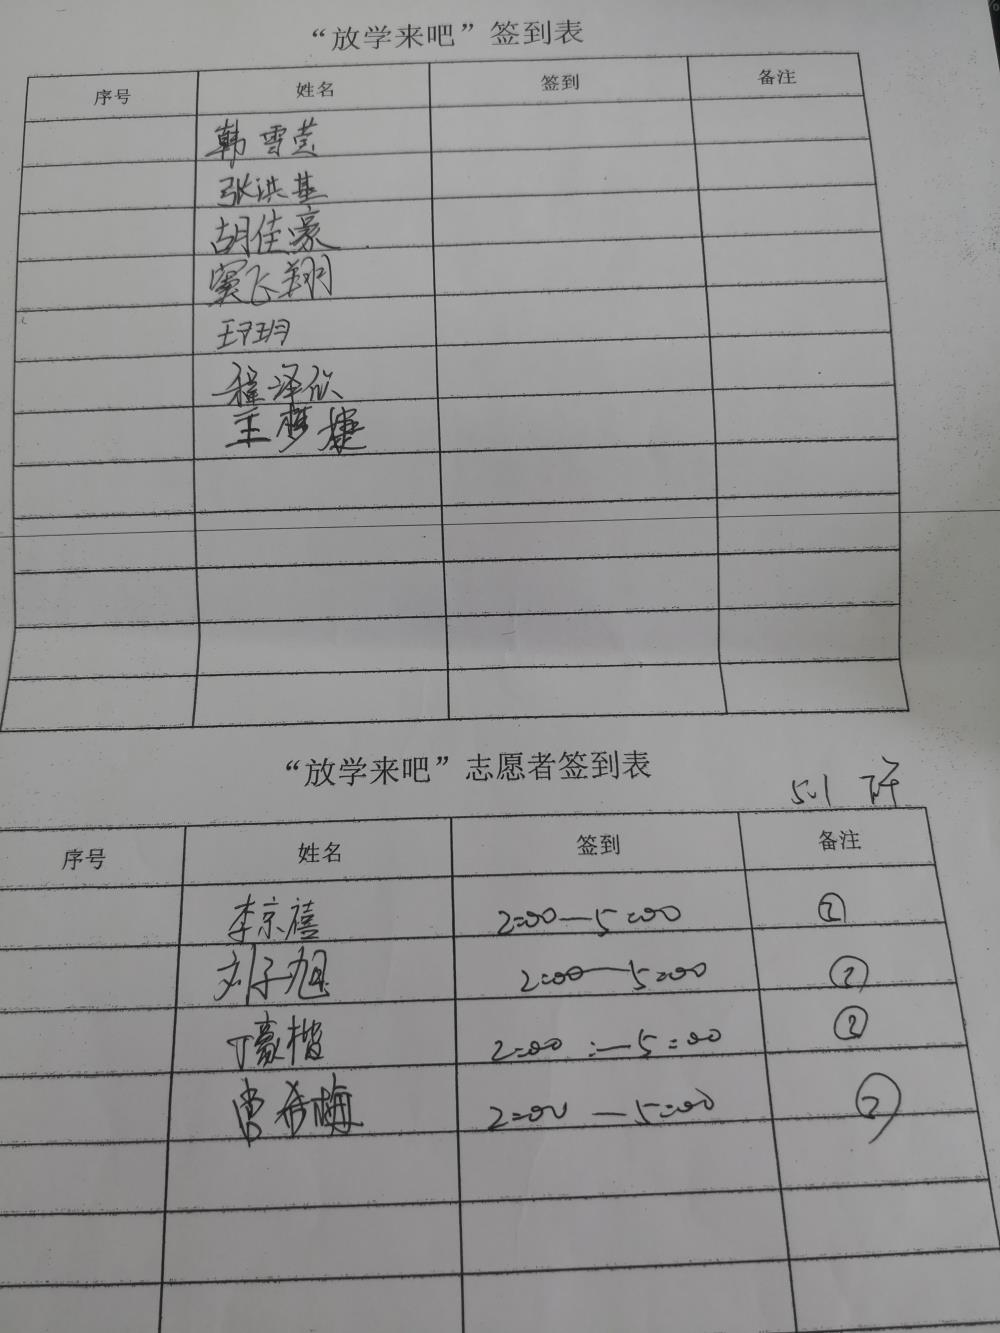 “放学来吧”签到表
序号 姓名 签到 备注
韩雪莹
张洪基
胡佳豪
窦飞翔
王玥
程泽欣
王梦捷
“放学来吧”志愿者签到表
5.1 下午
序号 姓名 签到 备注
李京禧 2:00—5:00 ②
刘子旭 2:00—5:00 ②
丁豪楷 2:00:—5:00 ②
曹希梅 2:00—5:00 ②